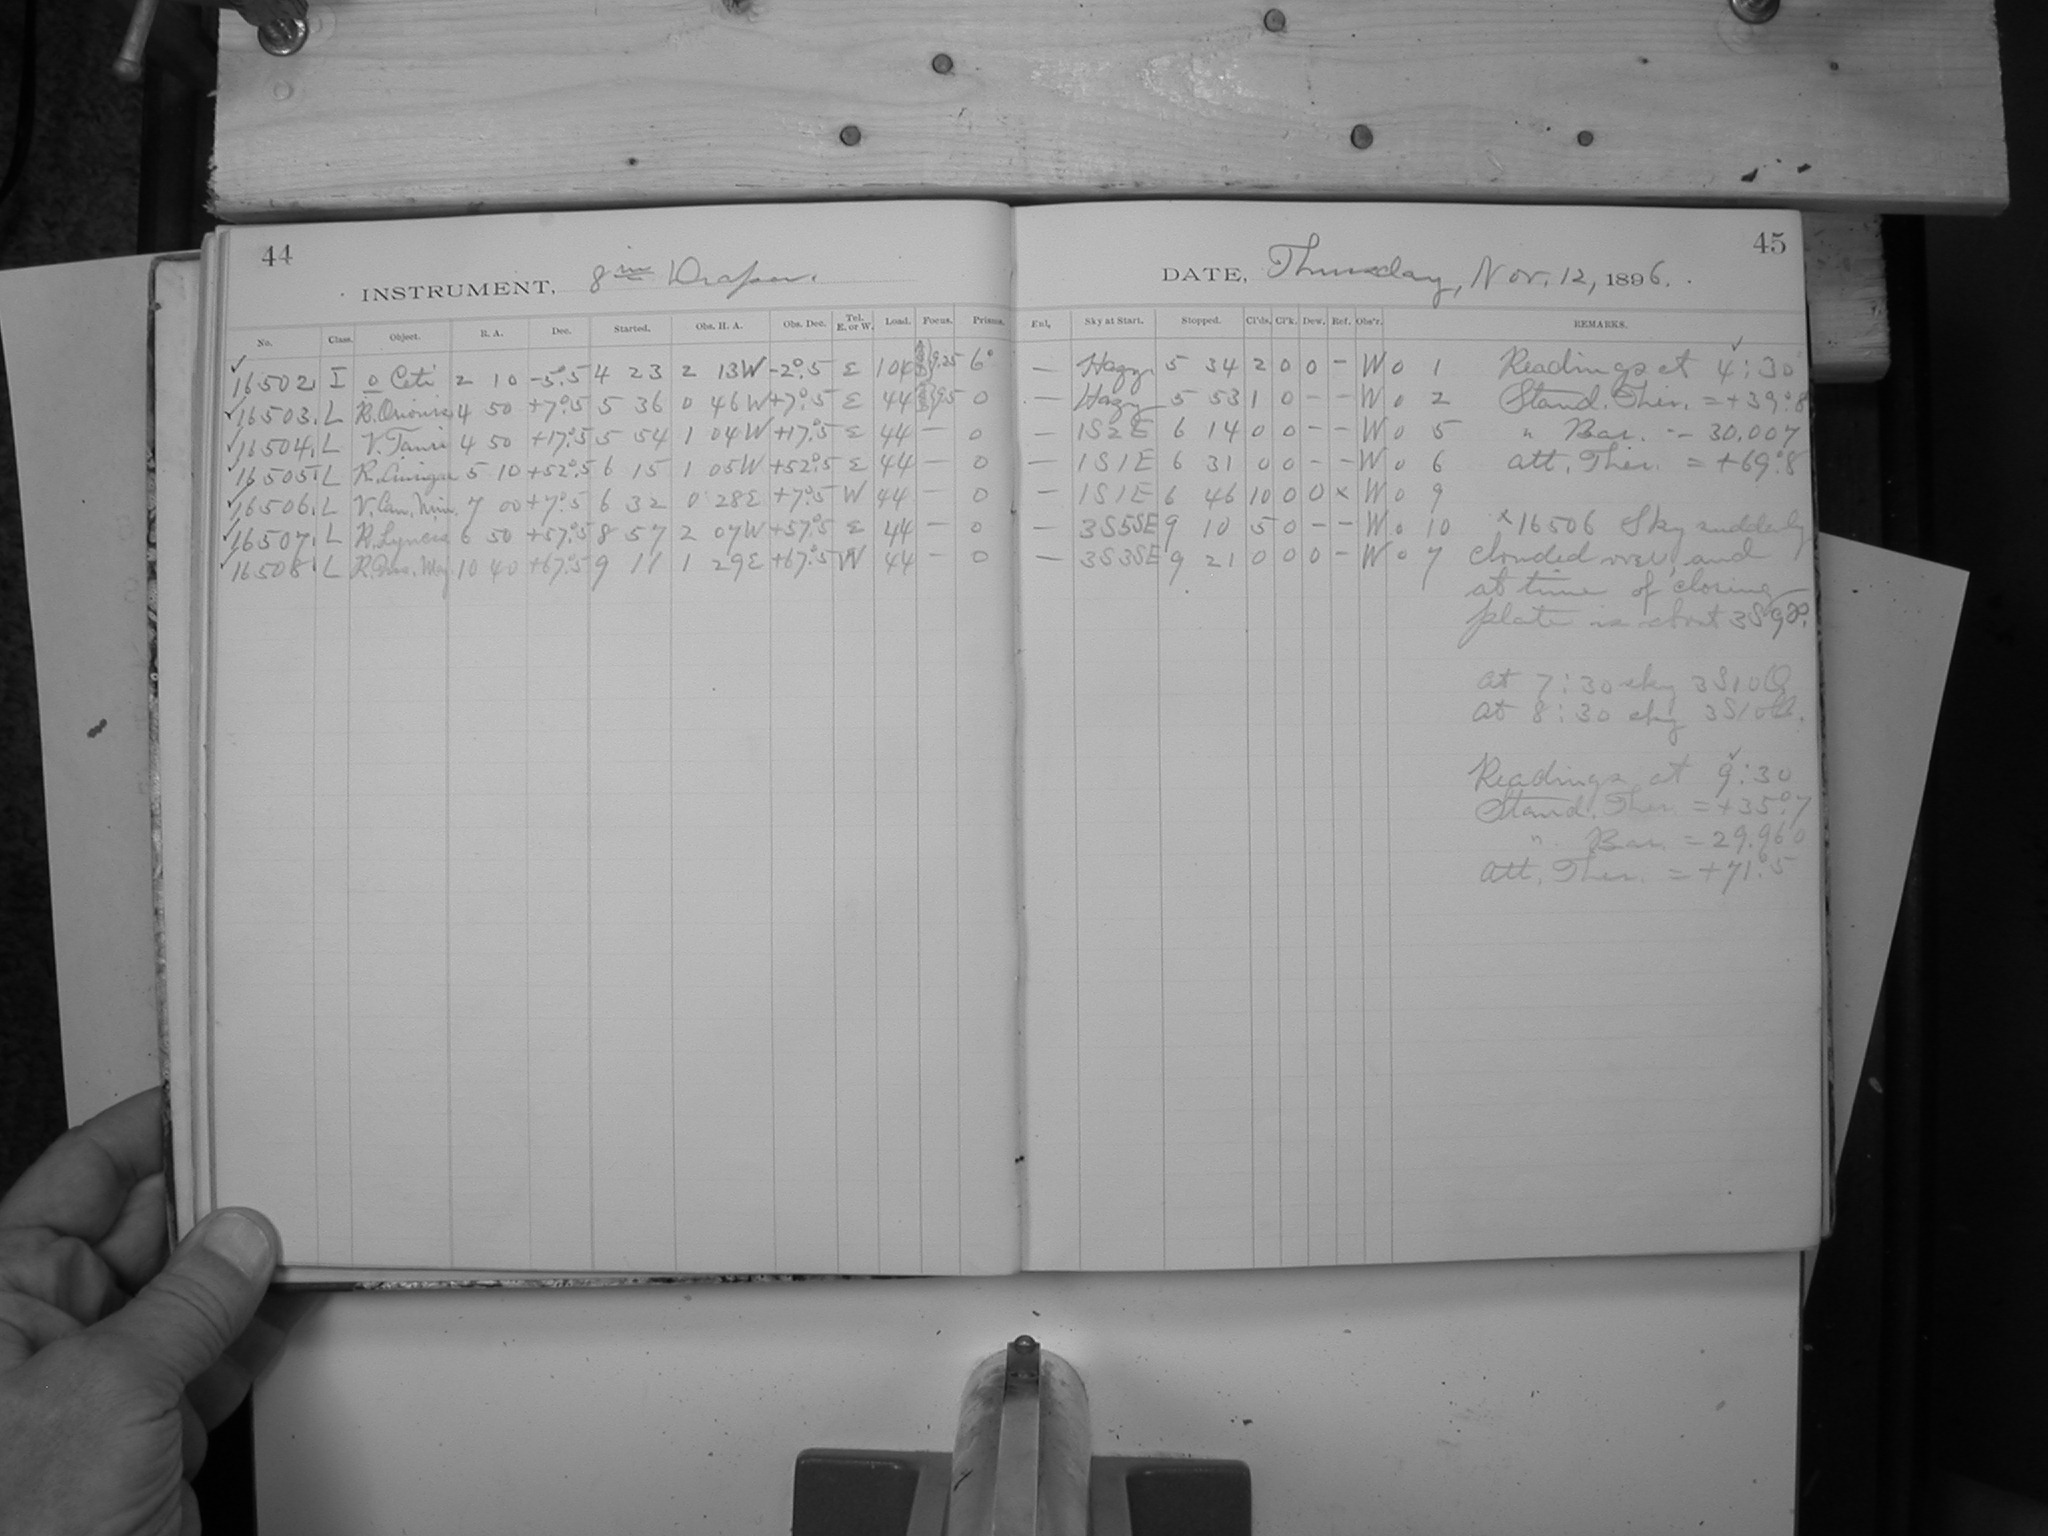 44
INSTRUMENT, 8 in Draper.
No. Class. Object. R. A. Dec. Started. Obs. H. A. Obs. Dec. Tel. E. or W. Load. Focus. Prisms.
16502 I o Ceti 2 10 -5°.5 4 23 2 13W -2°.5 E 104 9.25 6°
16503. L R. Orionis 4 50 +7°.5 5 36 0 46W +7°.5 E 44 9.5 0
16504. L V. Tauri 4 50 +17°.5 5 54 1 04W +17°.5 E 44 — 0
16505. L R. Aurigae 5 10 +52°.5 6 15 1 05W +52°.5 E 44 — 0
16506. L V. Can. Min. 7 00 +7°.5 6 32 0 28E +7°.5 W 44 — 0
16507. L R. Lyncis 6 50 +57°.5 8 57 2 07W +57°.5 E 44 — 0
16508. L R. Urs. Maj. 10 40 +67°.5 9 11 1 29E +67°.5 W 44 — 0
45
DATE, Thursday, Nov. 12, 1896.
Enl. Sky at Start. Stopped. Cl'ds. Cl'k. Dew. Ref. Obs'r. REMARKS.
— Hazy 5 34 2 0 0 - W 0 1 Readings at 4:30
— Hazy 5 53 1 0 - - W 0 2 Stand. Ther. = +39°.8
— 1S2E 6 14 0 0 - - W 0 5 " Bar. - 30.007
— 1S1E 6 31 0 0 - - W 0 6 Att. Ther. = +69°.8
— 1S1E 6 46 10 0 0 x W 0 9
— 3S5SE 9 10 5 0 - - W 0 10 x16506 Sky suddenly
— 3S3SE 9 21 0 0 0 - W 0 7 clouded over, and
at time of closing
plate is about 3S9
At 7:30 sky 3S10
At 8:30 sky 3S10
Readings at 9:30
Stand. Ther. = +35°.7
" Bar. = 29.960
Att. Ther. = +71°.5